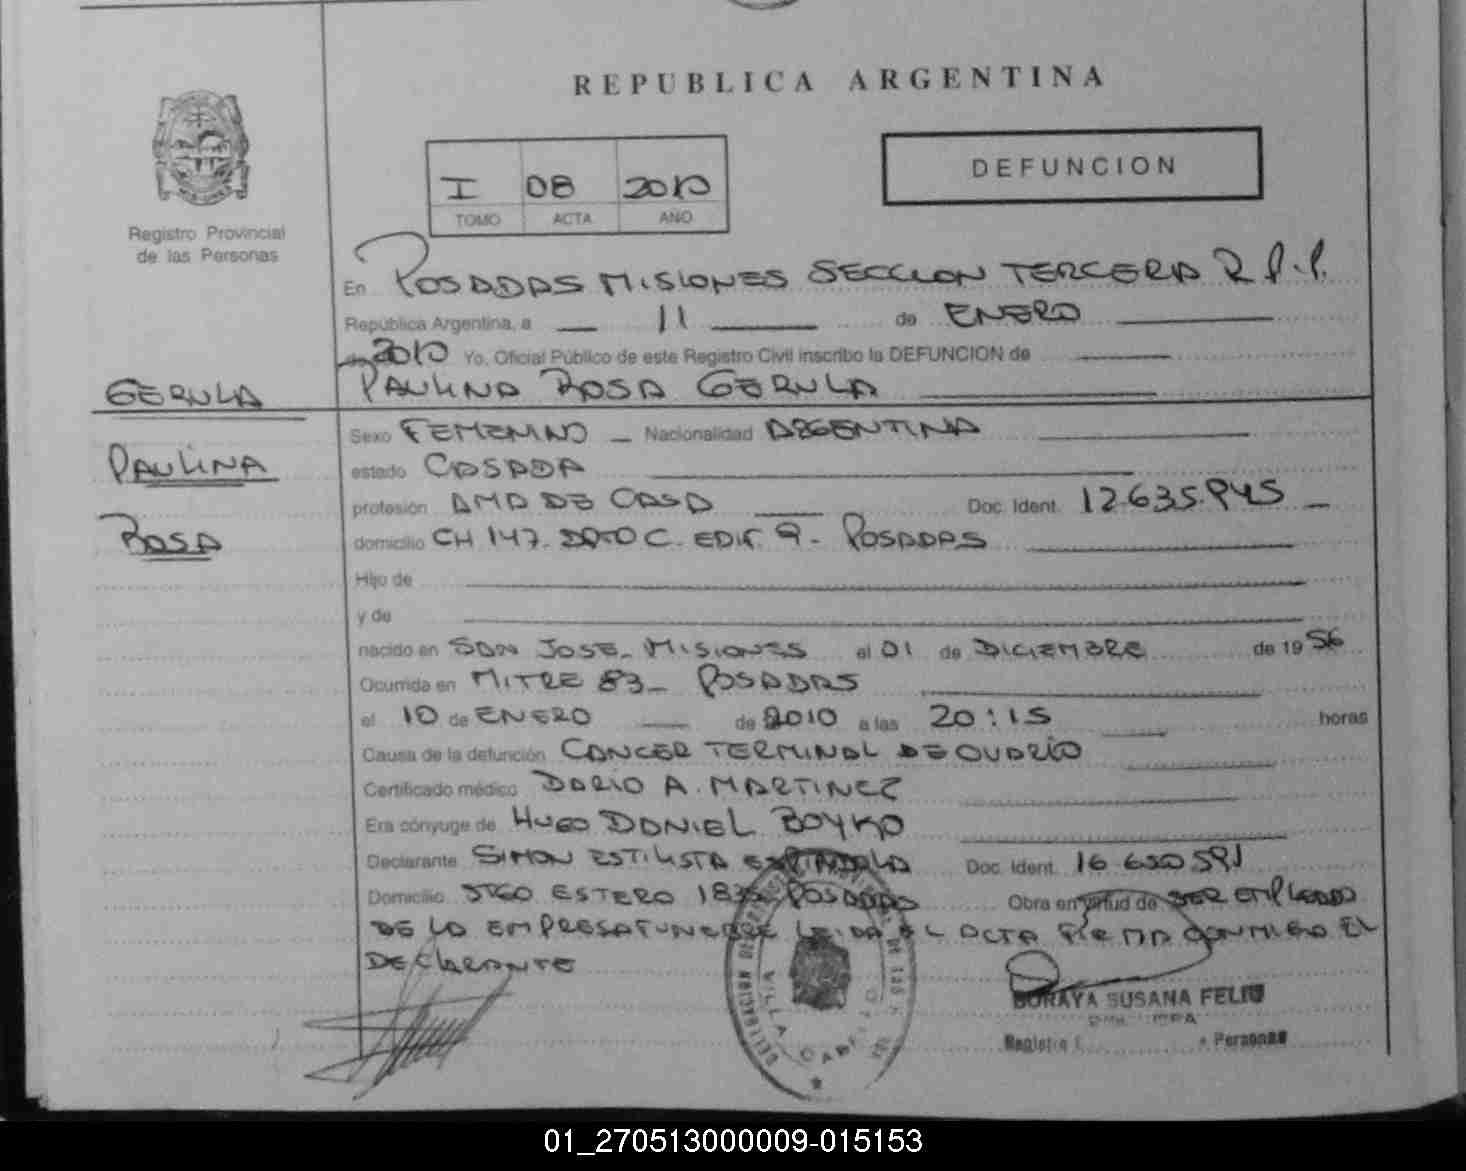 REPUBLICA ARGENTINA
DEFUNCION
I 08 2010
TOMO ACTA AÑO
Registro Provincial
de las Personas
En POSADAS MISIONES SECCION TERCERA R.P.P.
República Argentina, a 11 de ENERO
2010 Yo, Oficial Público de este Registro Civil inscribo la DEFUNCION de
GERULA
PAULINA ROSA GERULA
Sexo FEMENINO Nacionalidad ARGENTINA
PAULINA
estado CASADA
profesión AMA DE CASA Doc. Ident. 12.635.945
ROSA
domicilio CH 147. DPTO C. EDIF 9 - POSADAS
Hijo de
y de
nacido en SAN JOSE - MISIONES el 01 de DICIEMBRE de 1956
Ocurrida en MITRE 83 - POSADAS
el 10 de ENERO de 2010 a las 20:15 horas
Causa de la defunción CANCER TERMINAL DE OVARIO
Certificado médico DARIO A. MARTINEZ
Era cónyuge de HUGO DANIEL BOYKO
Declarante SIMON ESTILISTA Doc. Ident. 16.650.591
Domicilio STGO ESTERO POSADAS Obra en virtud de SER EMPLEADO
DE LA EMPRESA FUNEBRE LEIDA EL ACTA FIRMA CONMIGO EL
DECLARANTE
SORAYA SUSANA FELIU
Personas
VILLA CABELLO
01_270513000009-015153